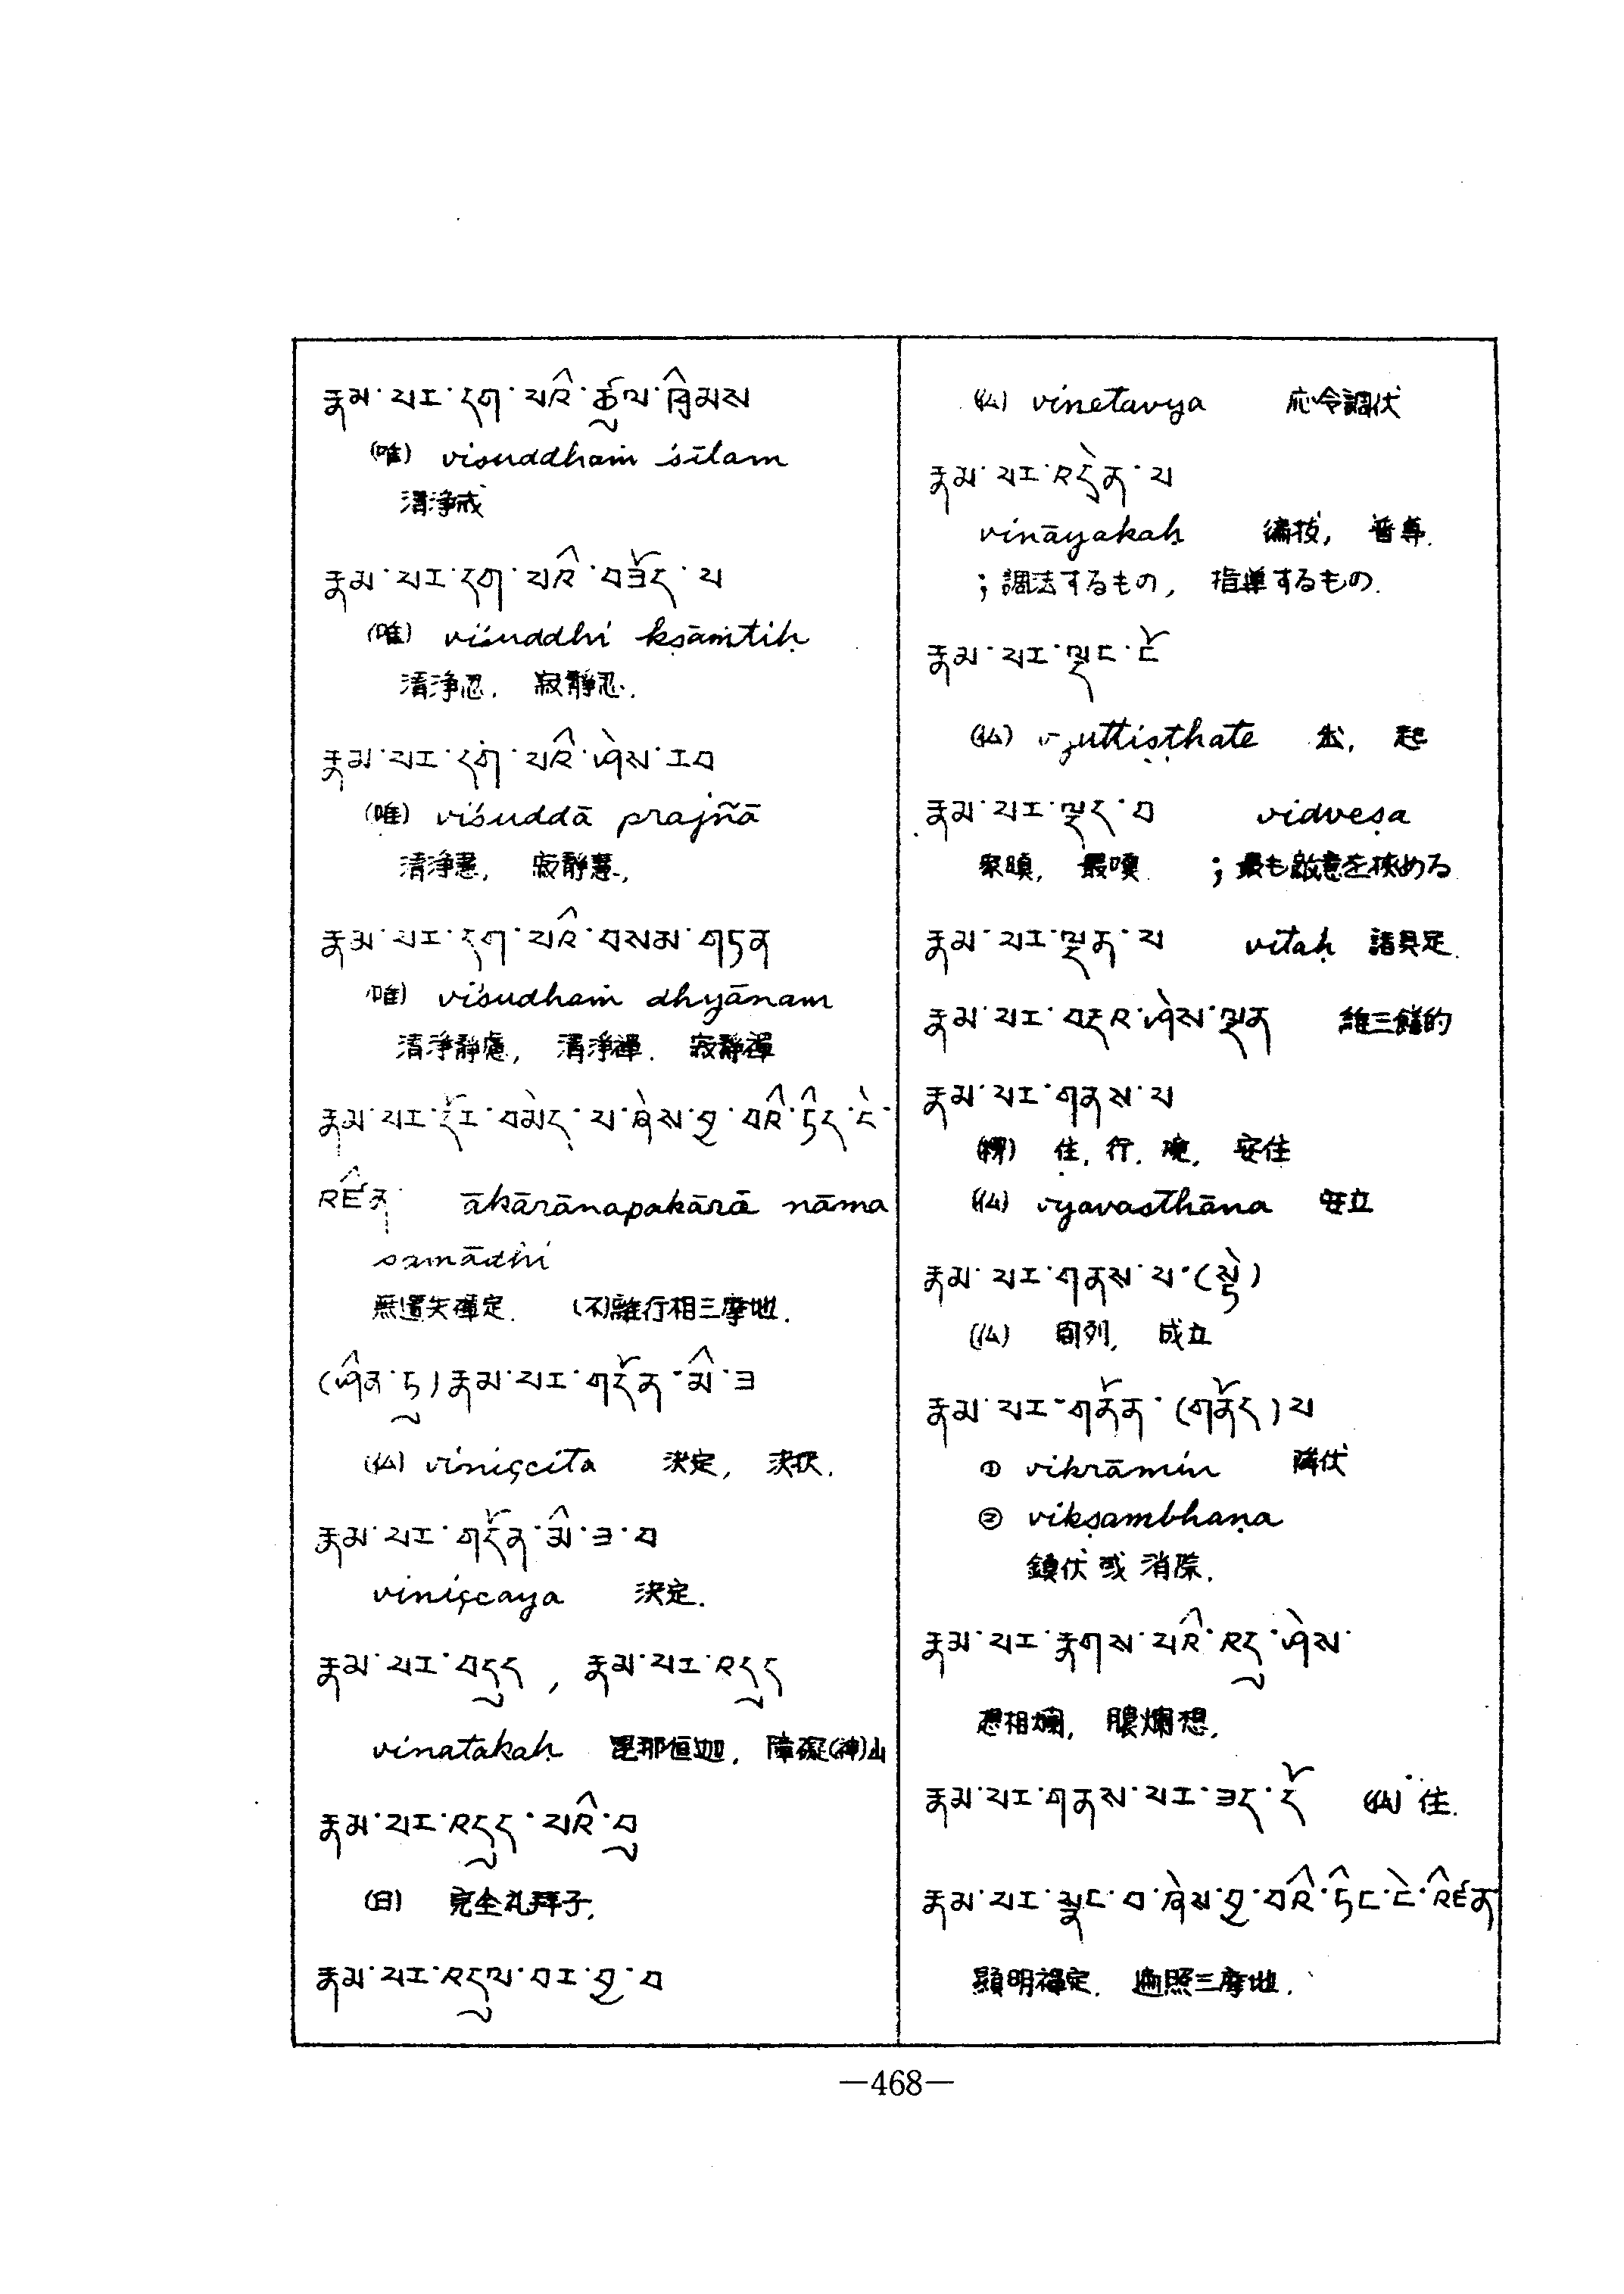 རྣམ་པར་དག་པའི་ཚུལ་ཁྲིམས
(唯) viśuddhaṁ śīlam
清浄戒
རྣམ་པར་དག་པའི་བཟོད་པ
(唯) viśuddhi kṣāṁtiḥ
清浄忍, 寂静忍.
རྣམ་པར་དག་པའི་ཤེས་རབ
(唯) viśuddā prajñā
清浄慧, 寂静慧,
རྣམ་པར་དག་པའི་བསམ་གཏན
(唯) viśudhaṁ dhyānam
清浄静慮, 清浄禅. 寂静禅
རྣམ་པར་དོར་བམེད་པ་ཞེས་བྱ་བའི་ཏིད་ངེ་
འཛིན ākārānapakārā nāma
samādhi
無遺失禅定. (不)離行相三摩地.
(ཤིན་ཏུ)རྣམ་པར་གདོན་མི་ཟ
(仏) viniçcita 決定, 決択.
རྣམ་པར་གདོན་མི་ཟ་བ
viniçcaya 決定.
རྣམ་པར་བདུད , རྣམ་པར་འདུད
vinatakaḥ 毘那恒迦, 障礙(神)山
རྣམ་པར་འདུད་པའི་བུ
(日) 完全礼拝子.
རྣམ་པར་འདུལ་བར་བྱ་བ
(仏) vinetavya 応令調伏
རྣམ་པར་འདྲེན་པ
vināyakaḥ
; 調法するもの, 指導するもの.
རྣམ་པར་ལྡང་ངོ
(仏) vyuttiṣṭhate 出, 起
རྣམ་པར་ལྡད་བ vidveṣa
; 最も敵意を
རྣམ་པར་ལྡན་པ vitaḥ 諸具足.
རྣམ་པར་བརྡའ་ཤེས་ལྡན
རྣམ་པར་གནས་པ
住, 行, 安住
(仏) vyavasthāna 安立
རྣམ་པར་གནས་པ་(སྟེ)
(仏) 成立
རྣམ་པར་གནོན་(གནོད)པ
① vikrāmin 降伏
② vikṣambhaṇa
鎮伏 或 消除.
རྣམ་པར་རྣགས་པའི་འདུ་ཤེས་
想相爛, 膿爛想,
རྣམ་པར་གནས་པར་ཟད་དོ (仏) 住.
རྣམ་པར་སྣང་བ་ཞེས་བྱ་བའི་ཏིང་ངེ་འིཛན
顕明禅定. 遍照三摩地.
—468—